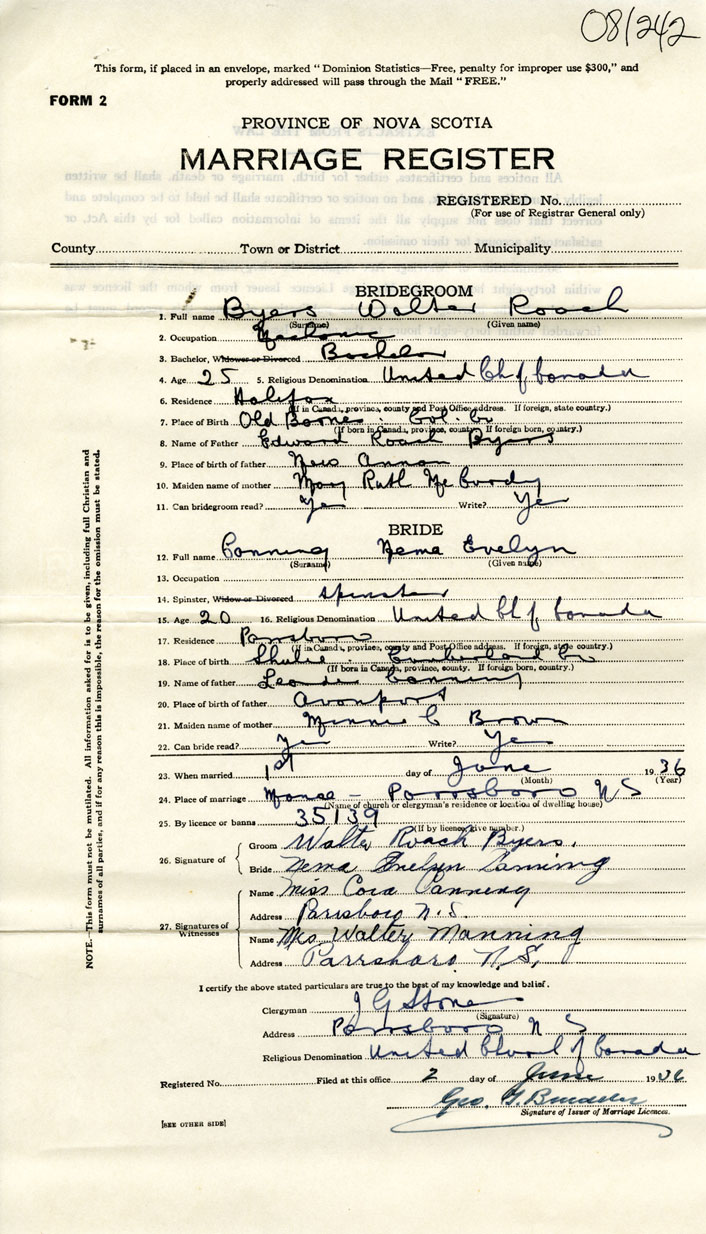 08/242
This form, if placed in an envelope, marked "Dominion Statistics—Free, penalty for improper use $300," and
properly addressed will pass through the Mail "FREE."
FORM 2
PROVINCE OF NOVA SCOTIA
MARRIAGE REGISTER
REGISTERED No.
(For use of Registrar General only)
County Town or District Municipality
BRIDEGROOM
1. Full name Byers Walter Roach
(Surname) (Given name)
2. Occupation
3. Bachelor, Widower or Divorced Bachelor
4. Age 25 5. Religious Denomination United Ch of Canada
6. Residence Halifax
(If in Canada, province, county and Post Office address. If foreign, state country.)
7. Place of Birth Old Barns Col. Co
(If born in Canada, province, county. If foreign born, country.)
8. Name of Father Edward Roach Byers
9. Place of birth of father New Annan
10. Maiden name of mother May Ruth McCurdy
11. Can bridegroom read? Yes Write? Yes
BRIDE
12. Full name Canning Nema Evelyn
(Surname) (Given name)
13. Occupation
14. Spinster, Widow or Divorced Spinster
15. Age 20 16. Religious Denomination United Ch of Canada
17. Residence Parrsboro
(If in Canada, province, county and Post Office address. If foreign, state country.)
18. Place of birth Shulie Cumberland Co
(If born in Canada, province, county. If foreign born, country.)
19. Name of father Canning
20. Place of birth of father Avonport
21. Maiden name of mother Minnie C Brown
22. Can bride read? Yes Write? Yes
23. When married 1st day of June 1936
(Month) (Year)
24. Place of marriage Manse – Parrsboro N S
(Name of church or clergyman's residence or location of dwelling house)
25. By licence or banns 35139
(If by licence, give number.)
26. Signature of Groom Walter Roach Byers.
Bride Nema Evelyn Canning
27. Signatures of Witnesses Name Miss Cora Canning
Address Parrsboro N.S.
Name Mrs Walter Manning
Address Parrsboro N.S,
I certify the above stated particulars are true to the best of my knowledge and belief.
Clergyman J G Stone
(Signature)
Address Parrsboro N S
Religious Denomination United Church of Canada
Registered No. Filed at this office 2 day of June 1936
Geo. G.
Signature of Issuer of Marriage Licences.
[SEE OTHER SIDE]
NOTE.—This form must not be mutilated. All information asked for is to be given, including full Christian and
surnames of all parties, and if for any reason this is impossible, the reason for the omission must be stated.